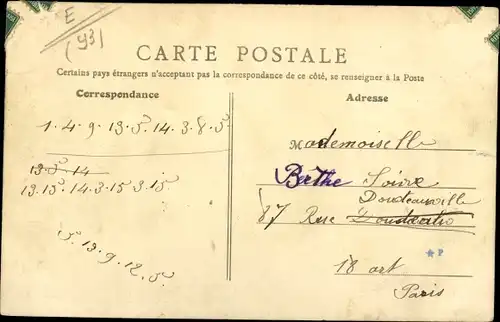 E
(93)
CARTE POSTALE
Certains pays étrangers n'acceptant pas la correspondance de ce côté, se renseigner à la Poste
Correspondance
Adresse
1.4.9.13.5.14.3.8.5
Mademoiselle
13.5.14
13.15.14.3.15.3.15
Berthe
Doudeauville
87 Rue
5.13.9.12.5
*P
18 art
Paris